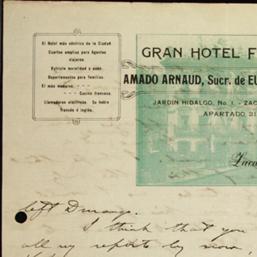 El Hotel más céntrico de la Ciudad
Cuartos amplios para Agentes
viajeros
Estricta moralidad y aseo.
Departamentos para familias.
El más moderno.
Cocina francesa
Llamadores eléctricos. Se habla
francés é inglés.
GRAN HOTEL F
AMADO ARNAUD, Sucr. de EU
JARDIN HIDALGO, No. 1. - ZAC
APARTADO 21
Zaca
left Durango.
I think that you
all my reports by now,